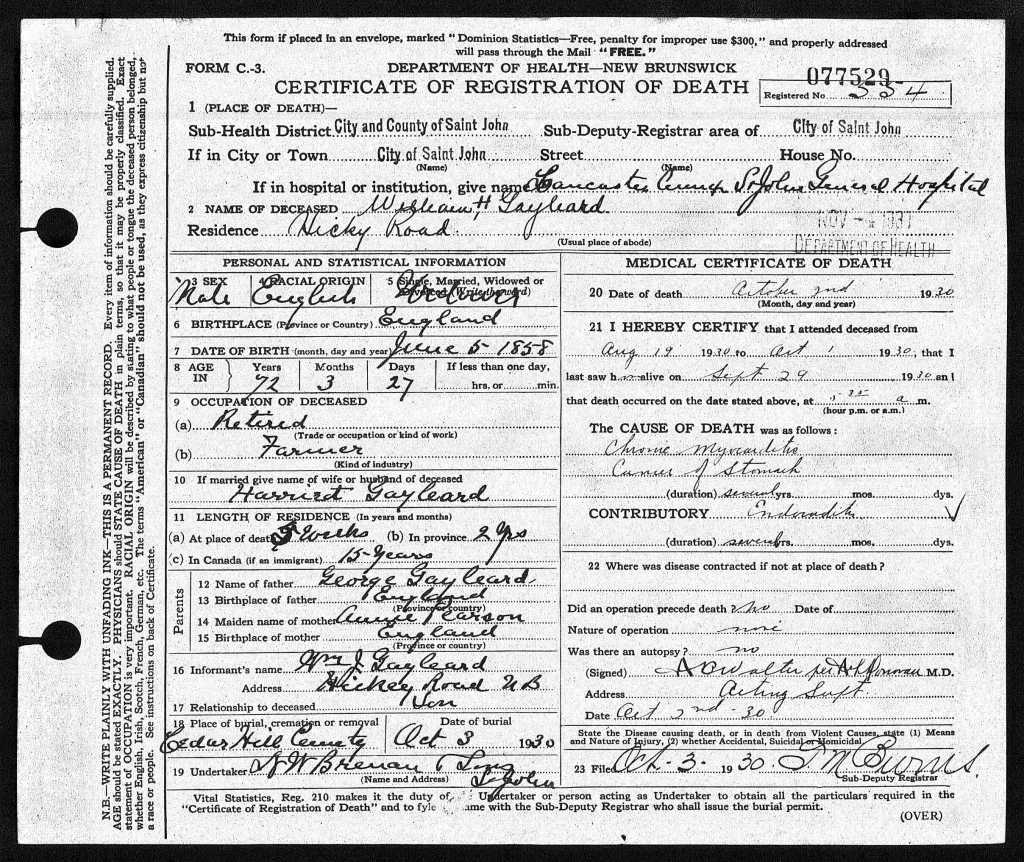 This form if placed in an envelope, marked "Dominion Statistics—Free, penalty for improper use $300," and properly addressed
will pass through the Mail "FREE."
FORM C.-3. DEPARTMENT OF HEALTH—NEW BRUNSWICK 077529
CERTIFICATE OF REGISTRATION OF DEATH Registered No 334
1 (PLACE OF DEATH)—
Sub-Health District City and County of Saint John Sub-Deputy-Registrar area of City of Saint John
If in City or Town City of Saint John Street House No.
(Name) (Name)
If in hospital or institution, give name Lancaster St John General Hospital
2 NAME OF DECEASED William H Gayleard
NOV 1931
Residence Hicky Road
(Usual place of abode) DEPARTMENT OF HEALTH
PERSONAL AND STATISTICAL INFORMATION
3 SEX 4 RACIAL ORIGIN 5 Single, Married, Widowed or
Divorced (Write the word)
Male English Widower
6 BIRTHPLACE (Province or Country) England
7 DATE OF BIRTH (month, day and year) June 5 1858
8 AGE IN Years Months Days If less than one day,
72 3 27 hrs. or min.
9 OCCUPATION OF DECEASED
(a) Retired
(Trade or occupation or kind of work)
(b) Farmer
(Kind of industry)
10 If married give name of wife or husband of deceased
Harriet Gayleard
11 LENGTH OF RESIDENCE (In years and months)
(a) At place of death Weeks (b) In province 2 Yrs
(c) In Canada (if an immigrant) 15 Years
Parents
12 Name of father George Gayleard
13 Birthplace of father England
(Province or country)
14 Maiden name of mother Annie Pearson
15 Birthplace of mother England
(Province or country)
16 Informant's name Wm J Gayleard
Address Hickey Road N B
17 Relationship to deceased Son
18 Place of burial, cremation or removal Date of burial
Cedar Hill Cemetery Oct 3 1930
19 Undertaker N W Brenan & Sons
(Name and Address) St John
MEDICAL CERTIFICATE OF DEATH
20 Date of death October 2nd 1930
(Month, day and year)
21 I HEREBY CERTIFY that I attended deceased from
Aug 19 1930 to Oct 1 1930, that I
last saw him alive on Sept 29 1930 and
that death occurred on the date stated above, at 5-35 a m.
(hour p.m. or a.m.)
The CAUSE OF DEATH was as follows:
Chronic Myocarditis
Cancer of Stomach
(duration) several yrs. mos. dys.
CONTRIBUTORY Endocarditis
(duration) several yrs. mos. dys.
22 Where was disease contracted if not at place of death?
Did an operation precede death? no Date of
Nature of operation none
Was there an autopsy? no
(Signed) per M.D.
Address Acting Supt
Date Oct 2nd - 30
State the Disease causing death, or in death from Violent Causes, state (1) Means
and Nature of Injury, (2) whether Accidental, Suicidal or Homicidal
23 Filed Oct. 3. 1930 Burns
Sub-Deputy Registrar
Vital Statistics, Reg. 210 makes it the duty of Undertaker or person acting as Undertaker to obtain all the particulars required in the
"Certificate of Registration of Death" and to fyle same with the Sub-Deputy Registrar who shall issue the burial permit.
(OVER)
N.B.—WRITE PLAINLY WITH UNFADING INK—THIS IS A PERMANENT RECORD. Every item of information should be carefully supplied.
AGE should be stated EXACTLY. PHYSICIANS should STATE CAUSE OF DEATH in plain terms, so that it may be properly classified. Exact
statement of OCCUPATION is very important. RACIAL ORIGIN will be described by stating to what people or tongue the deceased person belonged,
whether English, Irish, Scotch, French, German, etc. The terms "American" or "Canadian" should not be used, as they express citizenship but not
a race or people. See instructions on back of Certificate.